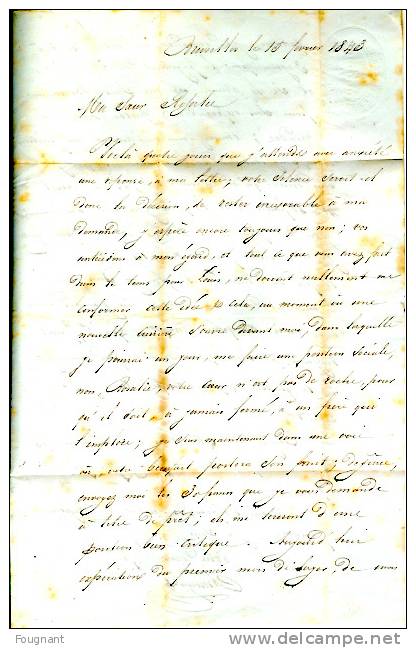 Bruxelles le 15 février 1843
Ma Sœur Rosalie
Voilà quatre jours que j'attends avec anxiété
une réponse, à ma lettre; votre silence serait-il
donc la décision, de rester inexorable à ma
demande, j'espère encore toujours que non; vos
à mon égard, et tout ce que vous avez fait
dans le tems pour Louis, ne doivent nullement me
confirmer cette idée & cela, au moment où une
nouvelle carrière s'ouvre devant moi, dans laquelle
je pourrai un jour, me faire une position sociale,
non, Rosalie votre cœur n'est pas de roche, pour
qu'il soit, à jamais fermé, à un frère qui
l'implore; je suis maintenant dans une voie
portera son fruit;
envoyez moi les 30 francs que je vous demande
à titre de prêt; ils me seront d'une
position bien critique. Aujourd'hui
expiration du premier mois de loyer, de mon
Fougnant
delcampe.net